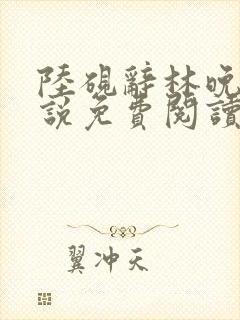 陸硯辭林晚
說免費閱讀
翼冲天